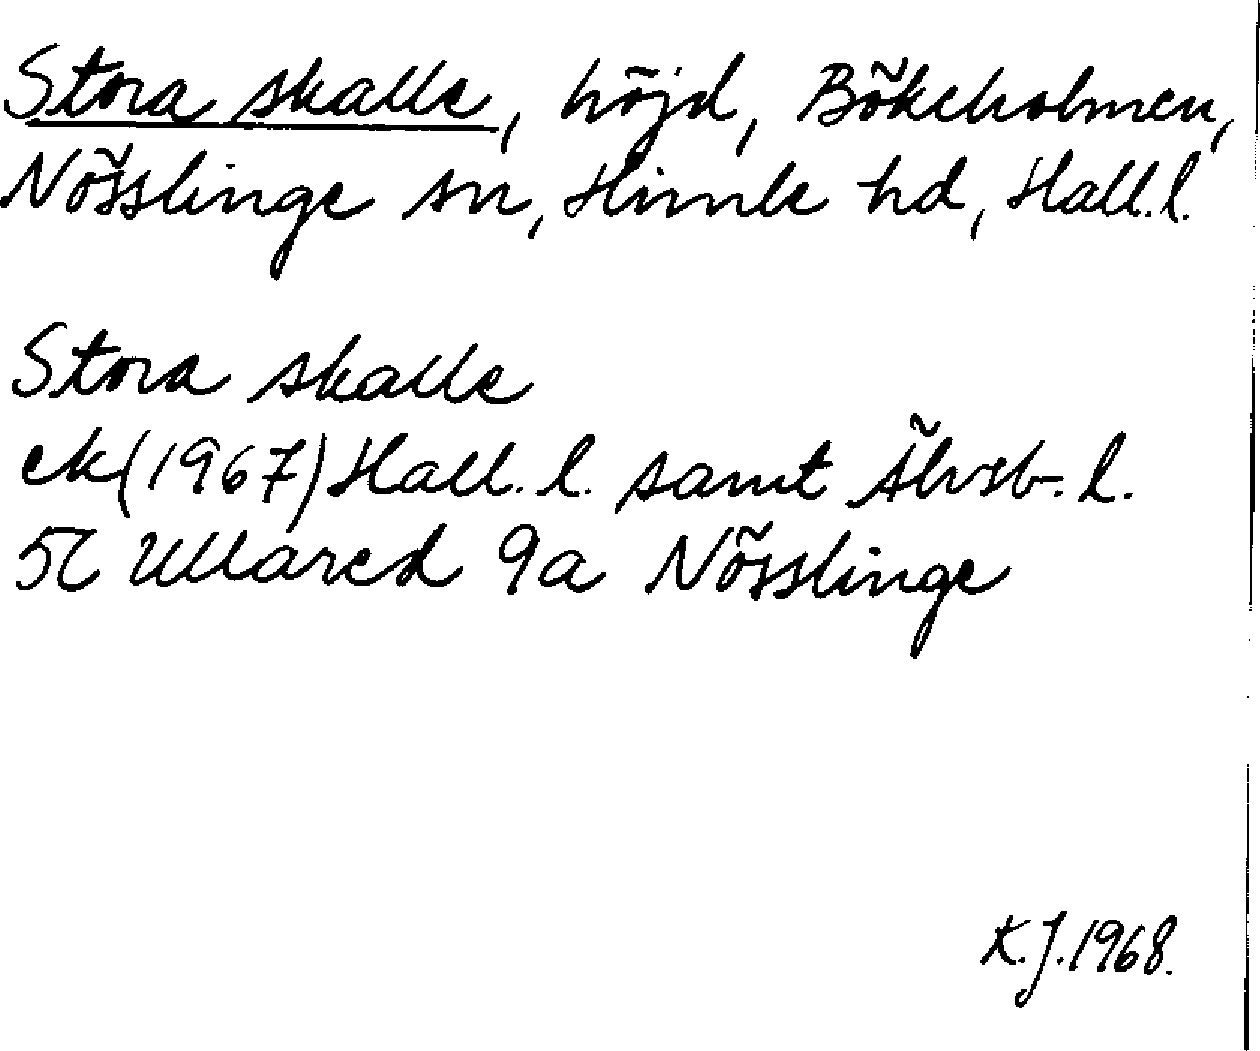 Stora skalle, höjd, Bökeholmen,
Nösslinge sn, Himle hd, Hall. l.
Stora skalle
ek (1967) Hall. l. samt Älvsb. l.
5C Ullared 9a Nösslinge
K.J. 1968.